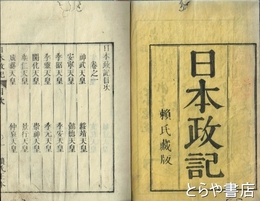 日本政記
賴氏藏版
日本政記目次
卷之一
神武天皇 綏靖天皇
安寧天皇 懿德天皇
孝昭天皇 孝安天皇
孝靈天皇 孝元天皇
開化天皇 崇神天皇
垂仁天皇 景行天皇
成務天皇 仲哀天皇
日本政記 目次
とらや書店